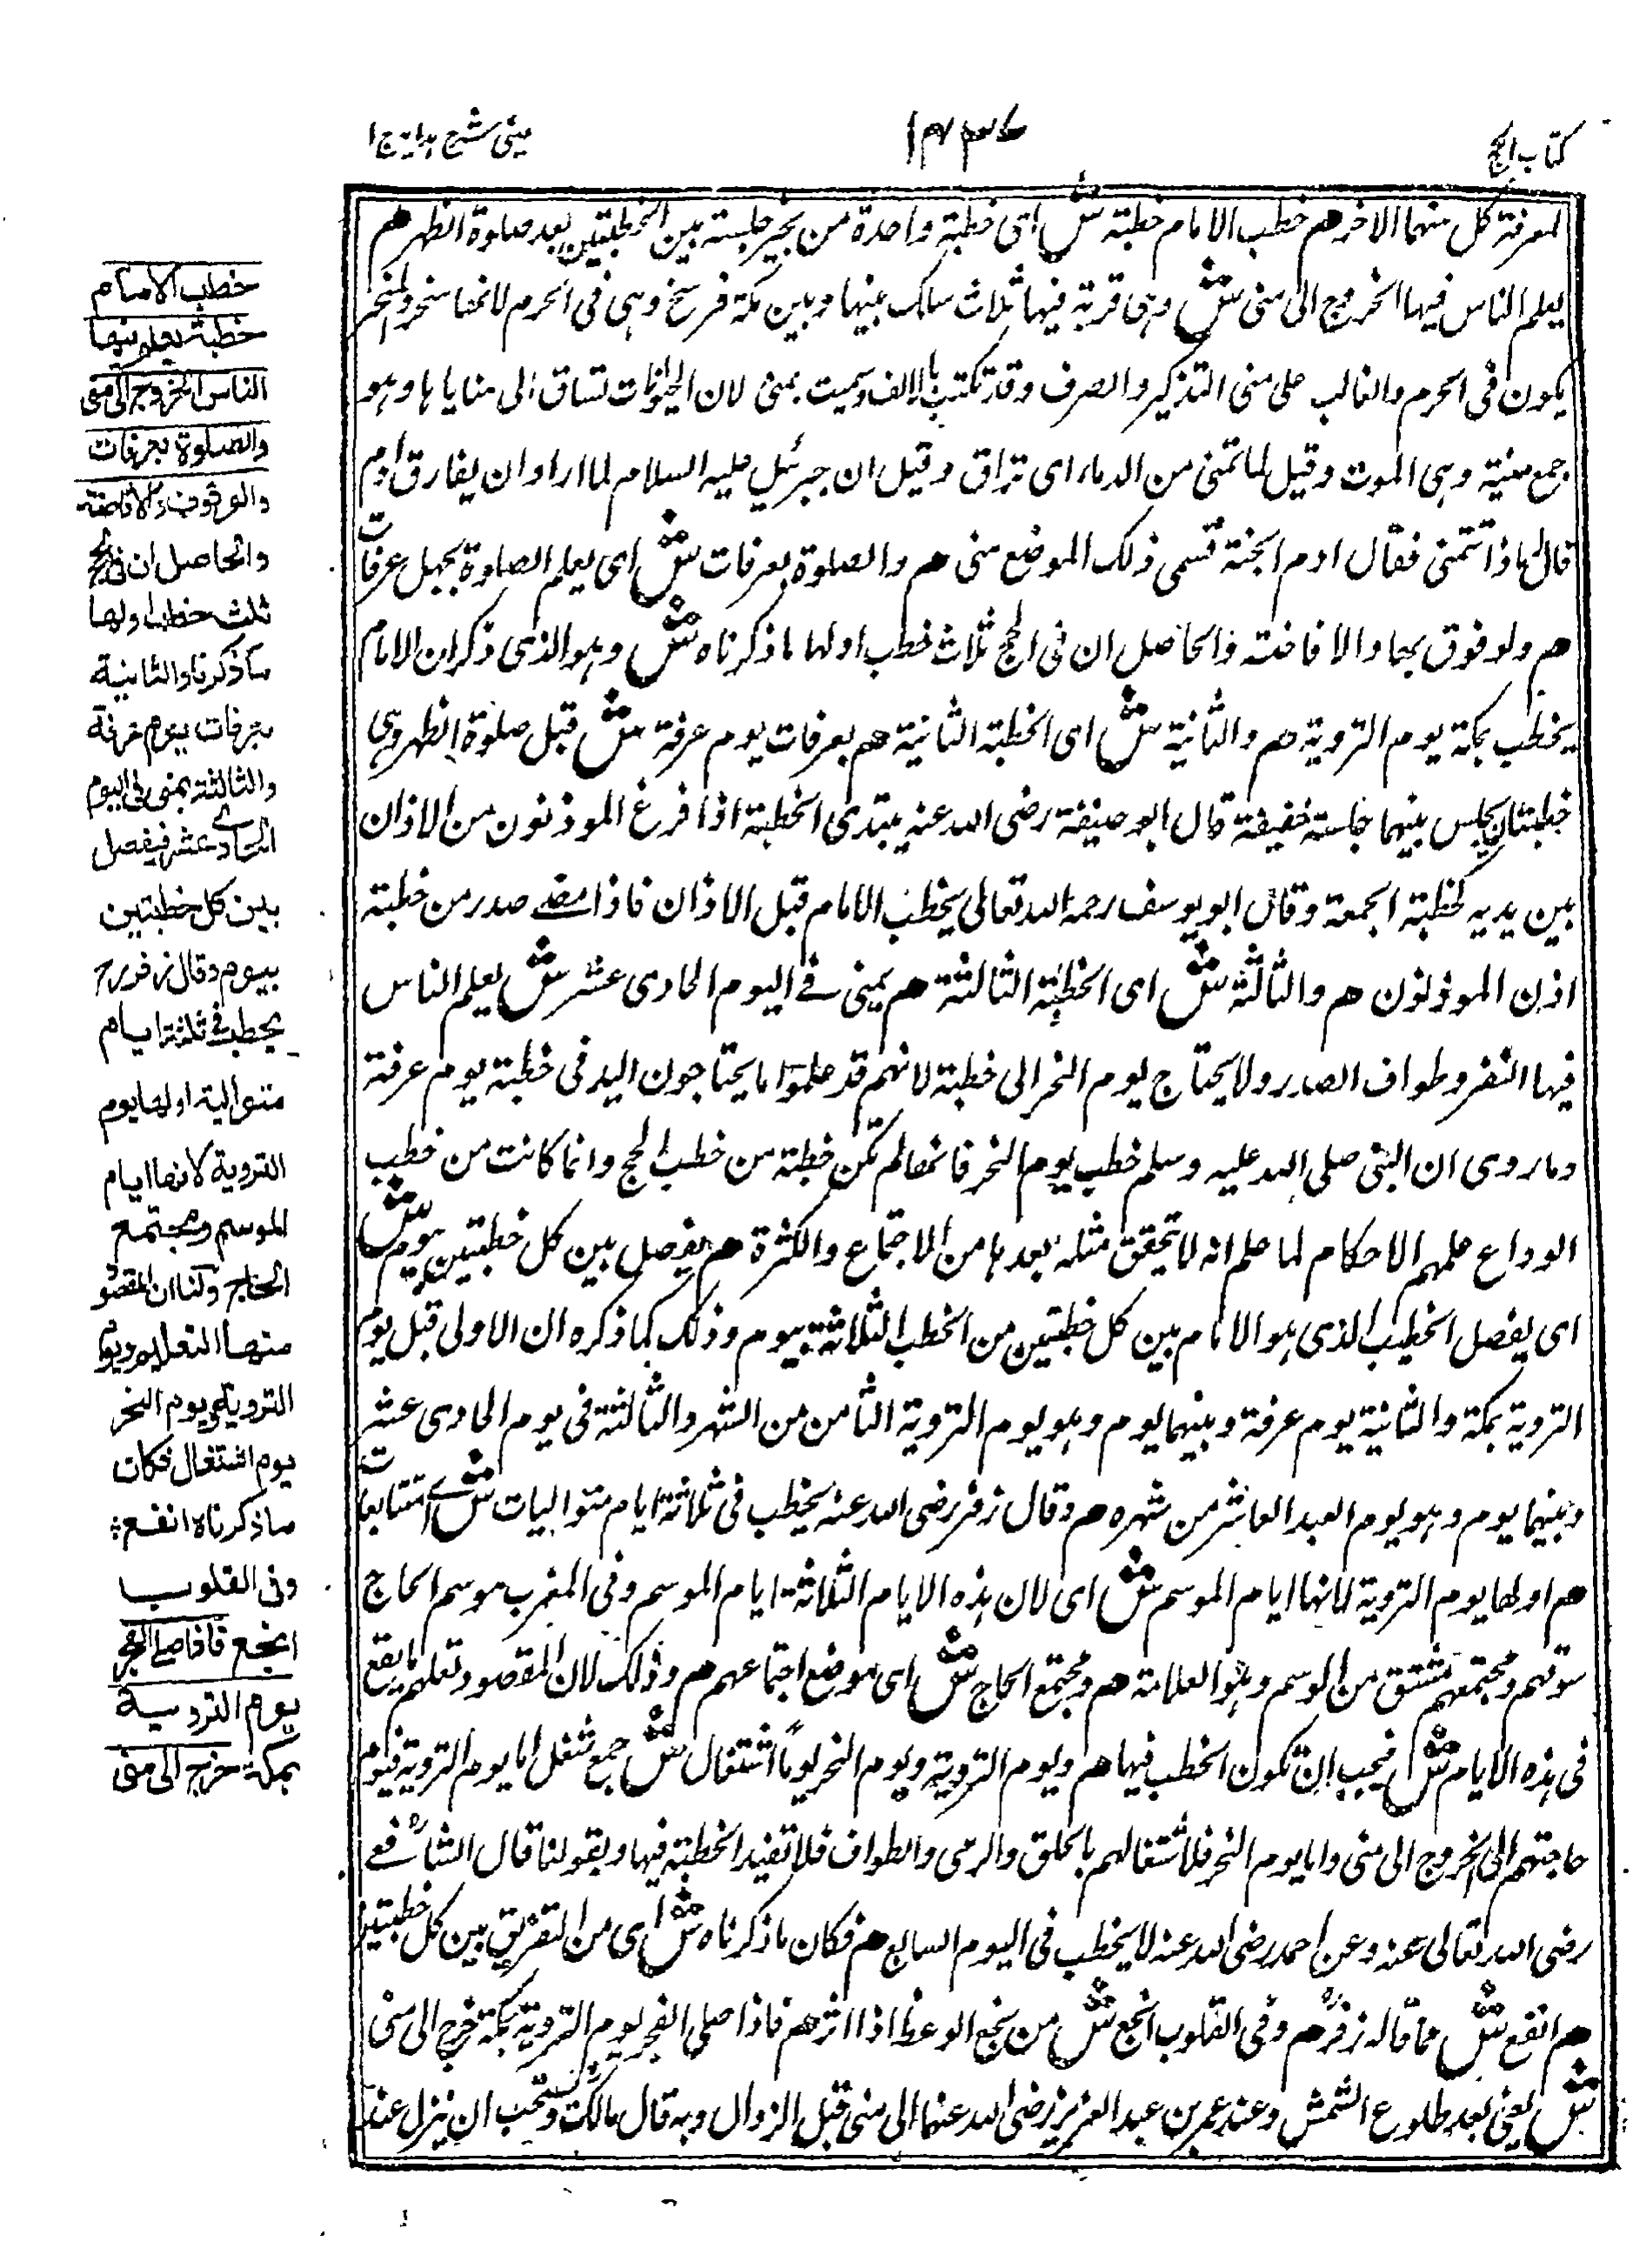 كتاب الحج
١٤٣٧
عينى شرح هداية ج ١
لمعرفة كل منهما الاخر هم خطب الامام خطبة ش اى خطبة واحدة من غير جلسته بين الخطبتين بعد صلوة الظهر هم
يعلم الناس فيها الخروج الى منى ش وهى قرية فيها ثلاث سكك بينها وبين مكة فرسخ وهى فى الحرم لانها منحر والمنحر
يكون فى الحرم والغالب على منى التذكير والصرف وقد تكتب بالالف وسميت بمنى لان الحيوانات تساق الى مناياها وهو
جمع منية وهى الموت وقيل لما تمنى من الدماء اى تراق وقيل ان جبرئيل عليه السلام لما اراد ان يفارق ادم
قال ماذا تتمنى فقال ادم الجنة فسمى ذلك الموضع منى هم والصلوة بعرفات ش اى يعلم الصلوة بجبل عرفات
هم ولوقوف بها والافاضته والحاصل ان فى الحج ثلاث خطب اولها ما ذكرناه ش وهو الذى ذكر ان الامام
يخطب بمكة يوم التروية هم والثانية ش اى الخطبة الثانية هم بعرفات يوم عرفة ش قبل صلوة الظهر وهى
خطبتان يجلس بينهما جلسته خفيفة قال ابو حنيفة رضى الله عنه يبتدى الخطبة اذا فرغ الموذنون من الاذان
بين يديه كخطبة الجمعة وقال ابو يوسف رحمه الله تعالى يخطب الامام قبل الاذان فاذا مضى صدر من خطبة
اذن الموذنون هم والثالثة ش اى الخطبة الثالثة هم بمنى فى اليوم الحادى عشر ش يعلم الناس
فيها النفر وطواف الصدر ولا يحتاج يوم النحر الى خطبة لانهم قد علموا ما يحتاجون اليه فى خطبة يوم عرفة
وما روى ان النبى صلى الله عليه وسلم خطب يوم النحر فانها لم تكن خطبة من خطب الحج وانما كانت من خطب
الوداع علمهم الاحكام لما علم انه لا تحقق مثله بعدها من الاجتماع والكثرة هم يفصل بين كل خطبتين بيوم ش
اى يفصل الخطيب الذى هو الامام بين كل خطبتين من الخطب الثلاثة بيوم وذلك كما ذكره ان الاولى قبل يوم
التروية بمكة والثانية يوم عرفة وبينهما يوم وهو يوم التروية الثامن من الشهر والثالثة فى يوم الحادى عشر
وبينهما يوم وهو يوم العيد العاشر من شهره هم وقال زفر رضى الله عنه يخطب فى ثلاثة ايام متواليات ش اى متتابعات
هم اولها يوم التروية لانها ايام الموسم ش اى لان هذه الايام الثلاثة ايام الموسم وفى المغرب موسم الحاج
سوقهم ومجتمعهم مشتق من الوسم وهو العلامة هم ومجتمع الحاج ش اى موضع اجتماعهم هم وذلك لان المقصود تعلمهم ما يقع
فى هذه الايام ش فيجب ان تكون الخطب فيها هم ويوم التروية ويوم النحر يوما اشتغال ش جمع شغل اما يوم التروية فيوم
حاجتهم الى الخروج الى منى واما يوم النحر فلاشتغالهم بالحلق والرمى والطواف فلا تفيد الخطبة فيها وبقولنا قال الشافعى
رضى الله تعالى عنه وعن احمد رضى الله عنه لا يخطب فى اليوم السابع هم فكان ما ذكرناه ش اى من التفريق بين كل خطبتين
هم انفع ش مما قاله زفر هم وفى القلوب انجع ش من نجع الوعظ اذا اثر هم فاذا صلى الفجر يوم التروية بمكة خرج الى منى
ش يعنى بعد طلوع الشمش وعند عمر بن عبد العزيز رضى الله عنهما الى منى قبل الزوال وبه قال مالك ويستحب ان ينزل عند
خطب الامام
خطبة يعلم فيها
الناس الخروج الى منى
والصلوة بعرفات
والوقوف والافاضة
والحاصل ان فى الحج
ثلث خطب اولها
ما ذكرنا والثانية
بعرفات يوم عرفة
والثالثة بمنى فى اليوم
الحادى عشر فيفصل
بين كل خطبتين
بيوم وقال زفر رح
يخطب فى ثلثة ايام
متوالية اولها يوم
التروية لانها ايام
الموسم ومجتمع
الحاج ولنا ان المقصود
منها التعليم ويوم
التروية ويوم النحر
يوم اشتغال فكان
ما ذكرناه انفع
وفى القلوب
انجع فاذا صلى الفجر
يوم التروية
بمكة خرج الى منى